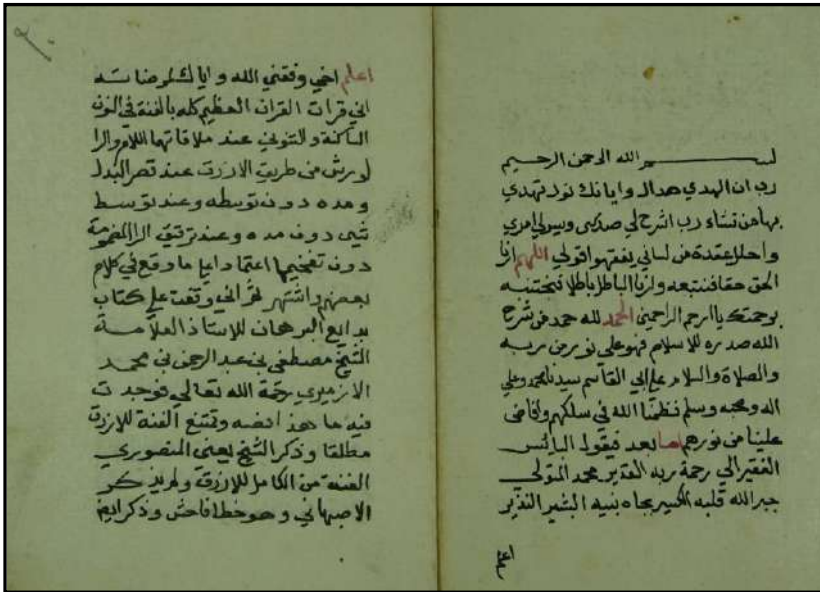 بسم الله الرحمن الرحيم
رب ان الهدي هداك واياتك نور تهدي
بها من تشاء رب اشرح لي صدري ويسر لي امري
واحلل عقدة من لساني يفقهوا قولي اللهم ارنا
الحق حقا فنتبعه وارنا الباطل باطلا فنجتنبه
برحمتك يا ارحم الراحمين الحمد لله حمد من شرح
الله صدره للاسلام فهو على نور من ربه
والصلاة والسلام علي ابي القاسم سيدنا محمد وعلي
اله وصحبه وسلم نظمنا الله في سلكهم وافاض
علينا من نورهم اما بعد فيقول البائس
الفقير الي رحمة ربه القدير محمد المتولي
جبر الله قلبه الكسير بجاه نبيه البشير النذير
اعلم
اعلم اخي وفقني الله واياك لمرضاته
اني قرات القران العظيم كله بالغنة في النون
الساكنة والتنوين عند ملاقاتهما اللام والرا
لورش من طريق الازرق عند قصر البدل
ومده دون توسيطه وعند توسط
شيء دون مده وعند ترقيق الرا المضمومة
دون تفخيمها اعتمادا علي ما وقع في كلام
بعضهم واشتهر ثم اني وقفت علي كتاب
بدايع البرهان للاستاذ العلامة
الشيخ مصطفي بن عبد الرحمن بن محمد
الازميري رحمة الله تعالي فوجدت
فيه ما هذا نصه وتمتنع الغنة للازرق
مطلقا وذكر الشيخ يعني المنصوري
الغنة من الكامل للازرق ولم يذكر
الاصبهاني وهو خطا فاحش وذكر ايضا